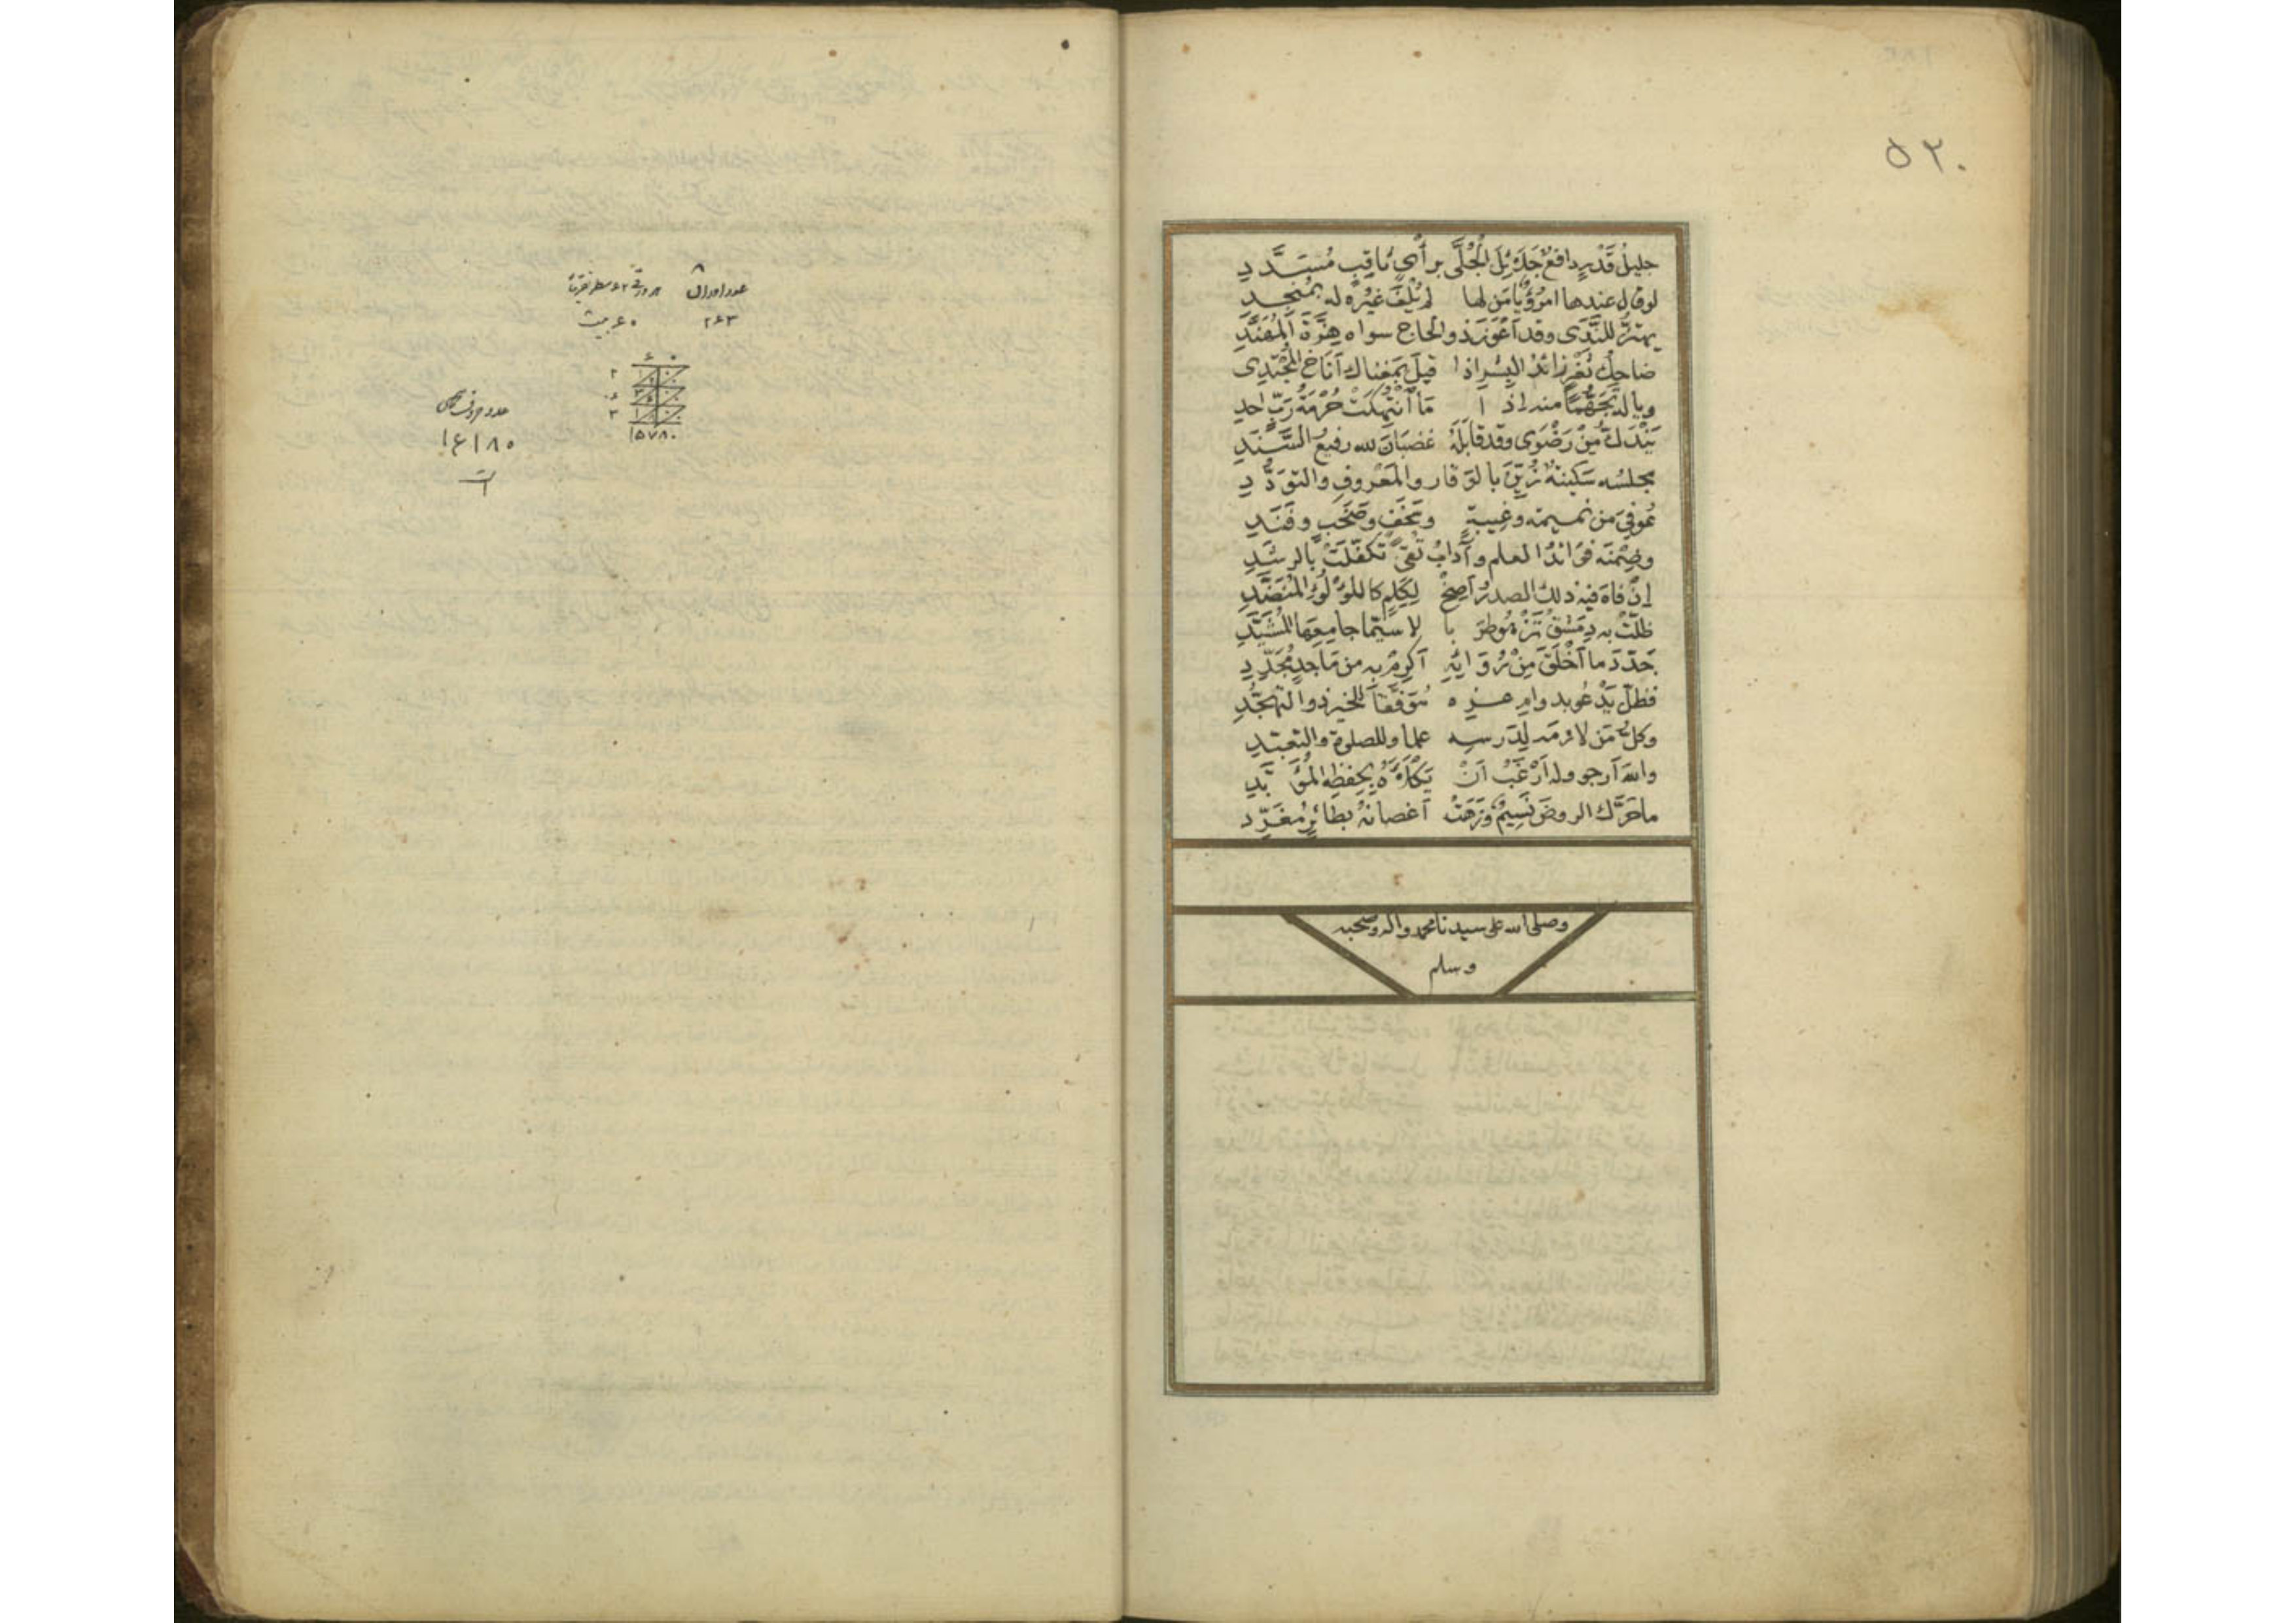 ٥٣٠
جليلُ قَدْرٍ دافعٌ جَدَّ بِّلَ الْجُلَّى برأيٍ ثاقِبٍ مُسَدَّدِ
لوقال عندها امرُؤٌ يا مَن لها لم يُلْفَ غيرُه له بمُنجِدِ
يهتزُّ للنَّدَى وقد أعْوَزَ ذو الحاج سواه هِزَّةَ المُهَنَّدِ
ضاحِكُ ثَغْرٍ زائدُ البِشْرِ اذا قيل بمَغْناك أناخ المُجْتَدِى
وياله تَجَهُّمًا منه إذا ما انْتُهِكَتْ حُرْمَةُ رَبٍّ احدِ
يَنْدَكُّ مِنْ رَضْوَى وقد قابَلَهُ غضبانَ لله رفيعُ السَّنَدِ
مجلسُه سَكِينةٌ زُيِّنَ بالوَقار والمَعْروفِ والتوَدُّدِ
عُوفِيَ من نميمة وغِيبةٍ وسَخَفٍ وصَخَبٍ وفَنَدِ
وضِمْنَه فوائدُ العلم وآدابُ تُقىً تكفَّلَتْ بالرشَدِ
إنْ فاهَ فيه ذلك الصدرُ أَصِخْ لِكَلِمٍ كاللؤلُؤِ المُنَضَّدِ
ظلّتْ به دِمَشْقُ تَزْهُو طَرَبا لاسيّما جامِعِها المُشَيَّدِ
جَدّدَ ما أخْلَقَ مِنْ رُوَائِهِ أكرِمْ به من مَاجدٍ مُجَدِّدِ
فظلّ يَدْعُو بدوامِ عـزه مُوَفَّقاً للخير ذو التهجُّدِ
وكلُّ مَن لازمه لِدَرسِهِ علما وللصلوة والتعبّدِ
والله أرجو وله أرْغَبُ أنْ يَكْلَأَهُ بحِفظِه المُؤَبَّدِ
ما حَرَّك الروضَ نَسِيمٌ وزَهَتْ أغصانهُ بطائرٍ مُغَرِّدِ
وصلى الله على سيدنا محمد وآله وصحبه
وسلم
عدد اوراق
٢٦٣
٦٠ بيت
١٥٧٨٠
١٦١٨٥